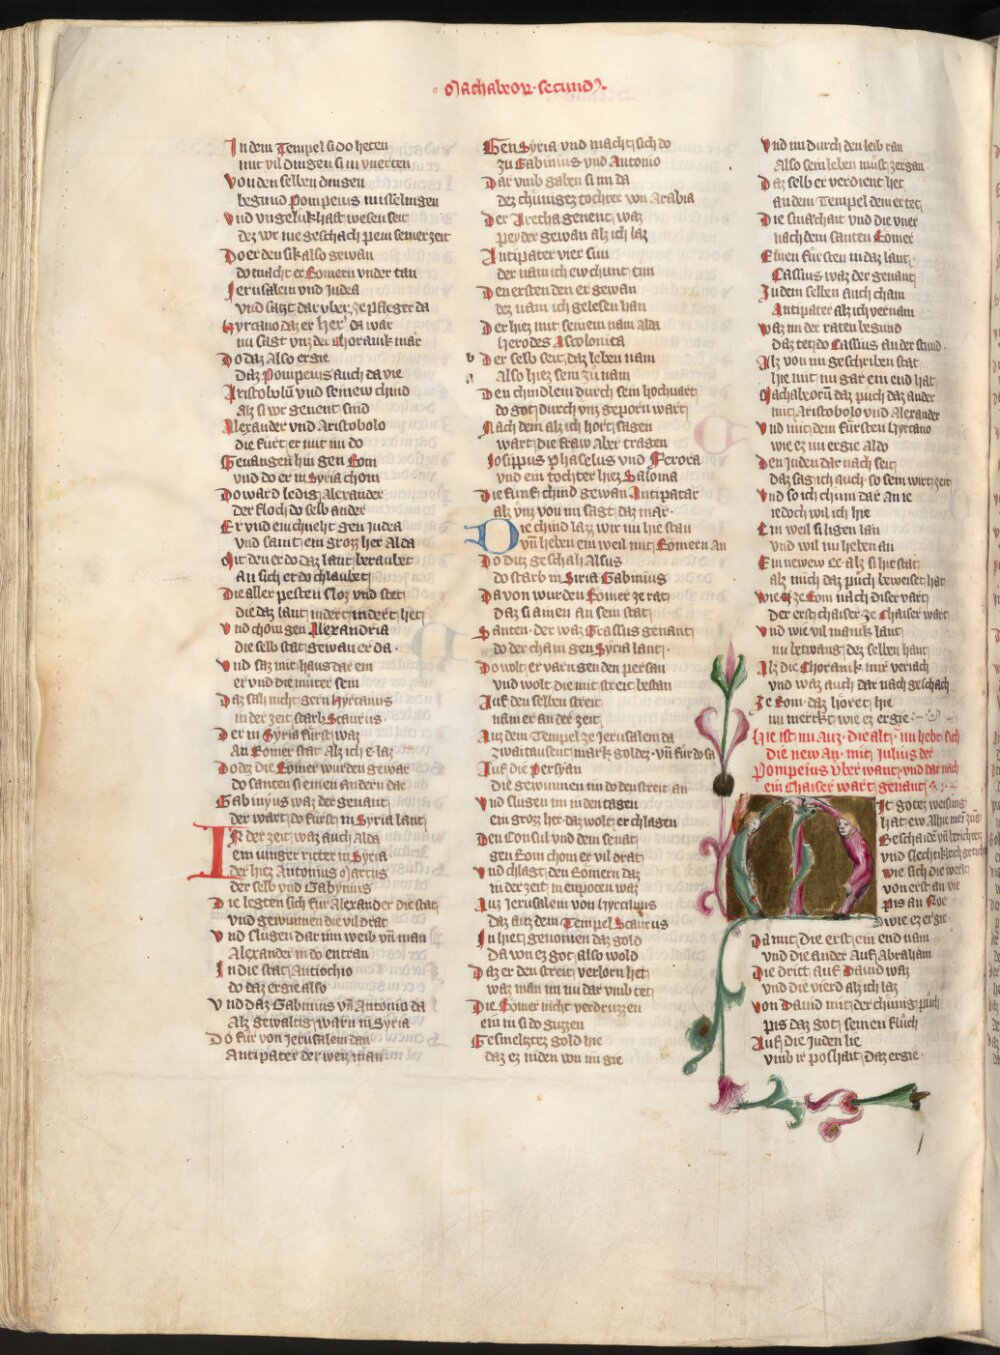 Machabeor secund9
In dem Tempel si do heten
mit vil dingen si in vnerten
Von den selben dingen
begund Pompeius misselingen
Vnd vngelukhaft wesen seit
dez wr nie geschach pein seiner zeit
Do er den sik also gewan
do macht er Romern vnder tan
Jerusalem vnd Judea
vnd satzt dar vber ze pfleger da
Hyrcano daz er her da war
nu sagt vnz der Choranik mar
Do daz also ergie
Daz Pompeius auch da vie
Aristobolū vnd seinew chind
alz si wr genent sind
Alexander vnd Aristobolo
die furt er mit im do
Gevangen hin gen Rom
vnd do er in Syria chom
Do ward ledig Alexander
der floch do selb ander
Er vnd ein chneht gen Judea
vnd saint ein groz her alda
Mit den er do daz lant beraubet
an sich er do chlaubet
Die aller pesten sloz vnd stet
die daz lant indert indert het
Vnd chom gen Alexandria
die selb stat gewan er da
Vnd saz mit haus dar ein
er vnd die muter sein
Daz sah nicht gern Hyrcanus
in der zeit starb Scaurus
Der in Syria furst waz
an Romer stat alz ich e laz
Do dez die Romer wurden gewar
do santen si einen andern dar
Gabinyus waz der genant
der wart do furst in Syria lant
In der zeit waz auch alda
ein iunger ritter in Syria
der hiez Antonius Martius
der selb vnd Gabynius
Die legten sich fur Alexander die stat
vnd gewunnen die vil drat
Vnd slugen dar inn weib vn̄ man
Alexander in do entran
In die stat Antiochio
do daz ergie also
Vnd daz Gabinius vn̄ Antonio da
alz gewaltig warn in Syria
Do fur von Jerusalem dan
Antipater der weiz man
Gen Syria vnd macht sich do
zu Gabinius vnd Antonio
Dar vmb gaben si im da
dez chunigez tochter von Arabia
Der Aretha genent waz
pey der gewan alz ich laz
Antipater vier sun
der nam ich ew chunt tun
Den ersten den er gewan
dez nam ich gelesen han
Der hiez mit seinem nam alda
herodes Ascolonita
Der selb seit daz leben nam
also hiez sein zu nam
Den chindlein durch sein hochuart
do got durch vnz geporn wart
Nach dem alz ich hort sagen
wart die fraw aber tragen
Josippus Phaselus vnd Ferora
vnd ein tochter hiez Saloma
Die funf chind gewan Antipatar
alz vnz von im sagt daz mar
Die chind laz wir nu hie stan
vn̄ heben ein weil mit Romern an
Do diz geschah alsus
do starb in Siria Gabinius
Da von wurden Romer ze rat
daz si ainen an sein stat
Santen der waz Crassus genant
do der cham gen Syria lant
Do wolt er varn gen den persan
vnd wolt die mit streit bestan
Auf den selben streit
nam er an der zeit
Auz dem Tempel ze Jerusalem da
zwaitausent mark goldez vn̄ fur do sa
Auf die Persyan
die gewunnen im do den streit an
Vnd slugen im in den tagen
ein groz her daz wolt er chlagen
Den Consul vnd dem senat
gen Rom chom er vil drat
Vnd chlagt den Romern daz
in der zeit in enpoten waz
Auz Jerusalem von Hyrcanus
daz auz dem Tempel Scaurus
In hiet genomen daz gold
da von ez got also wold
Daz er den streit verlorn het
waz man im nu dar vmb tet
Die Romer nicht verdruzzen
ein in si do guzzen
Gesmeltztez gold hie
daz ez inden von im gie
Vnd im durch den leib ran
also sein leben must zergan
Daz selb er verdient het
an dem Tempel dem er tet
Die smachait vnd die vner
nach dem santen Romer
Einen fursten in daz lant
Cassius waz der genant
Zu dem selben auch cham
Antipater alz ich vernam
Waz im der raten begund
daz tet do Cassius an der stund
Alz von im geschriben stat
hie mit nu gar ein end hat
Machabeorū daz puch daz ander
mit Aristobolo vnd Alexander
Vnd mit dem fursten Hyrcano
wie ez im ergie aldo
Den Juden dar nach seit
daz sag ich auch so sein wirt zeit
Vnd so ich chum dar an ie
iedoch wil ich hie
Ein weil si ligen lan
vnd wil nu heben an
Ein newew ee alz si hie stat
alz mich daz puch beweiset hat
Wie ez ze Rom nach diser vart
Der erst chaiser ze chaiser wart
Vnd wie vil manik lant
im betwang dez selben hant
Alz die Choranik mir veriach
vnd waz auch dar nach geschach
Ze Rom daz horet hie
nu merkt wie ez ergie
Hie ist nu auz die alt nu hebt sich
die new an mit Julius der
Pompeius vber want vnd dar nach
ein chaiser wart genant
Mit gotez weisung
hat ew
Beschaiden vn̄ berichtet
vnd slechtikleich getichtet
wie sich die werlt
von erst an vie
pis an Noe
wie ez ergie
Da mit die erst ein end nam
vnd die ander auf Abraham
Die dritt auf Dauid waz
vnd die vierd alz ich laz
Von Dauid mit der chunig puch
pis daz got seinen fluch
Auf die Juden lie
vmb ir poshait daz ergie